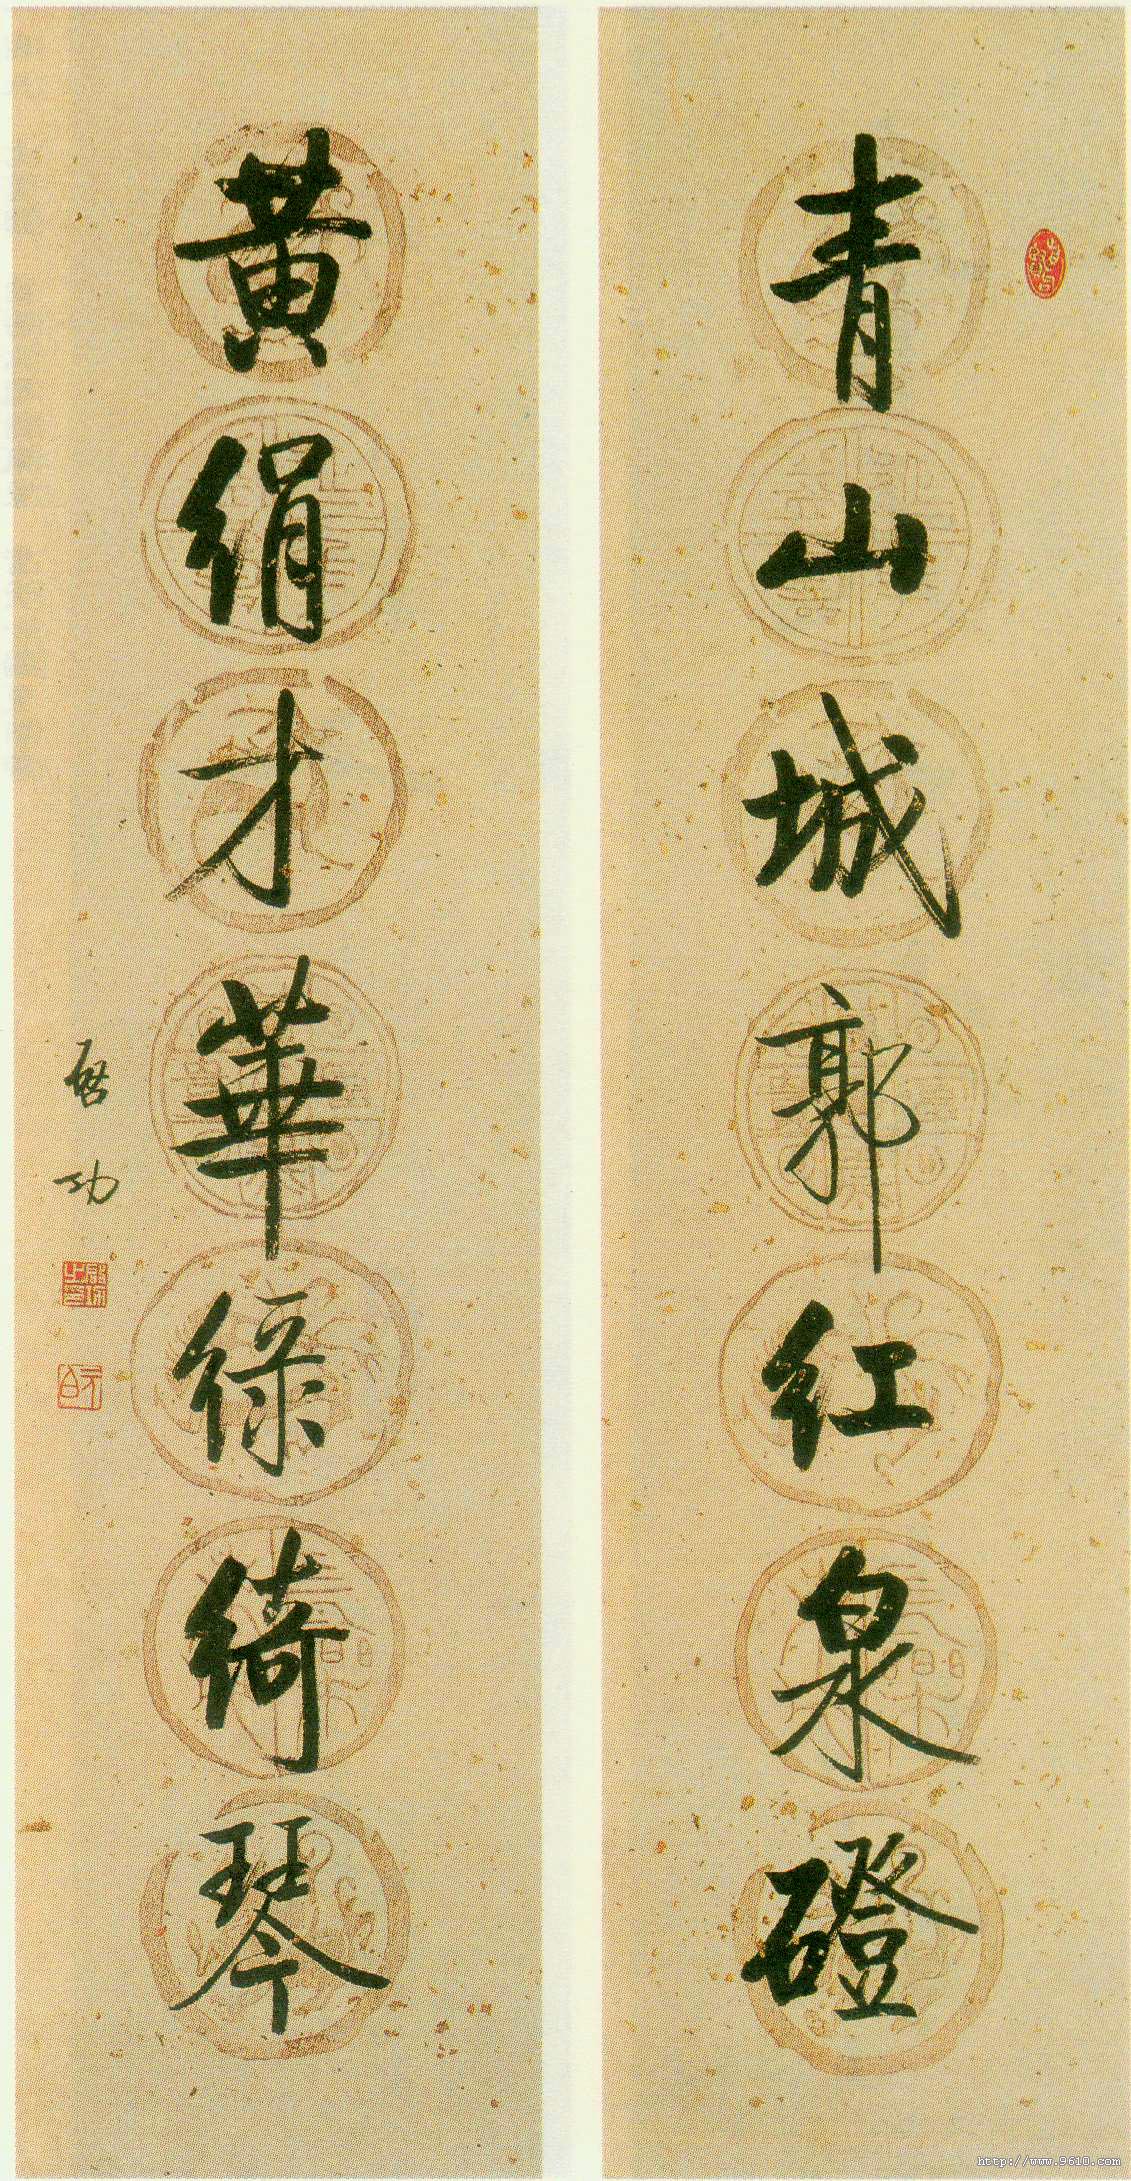 青山城郭红泉磴
黄绢才華緑綺琴
啓功
http://www.9610.com